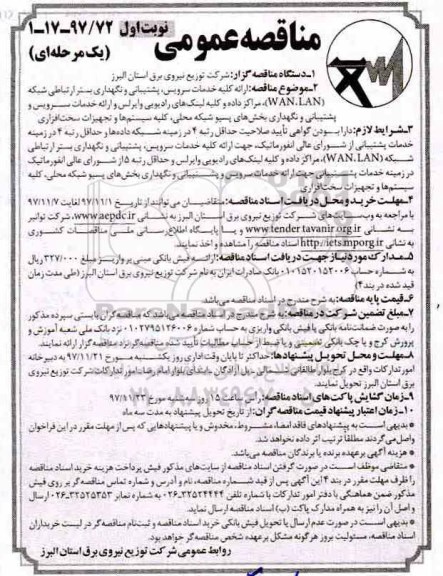 مناقصه عمومی
نوبت اول
۱-۱۷-۹۷/۷۲
(یک مرحله‌ای)
۱-دستگاه مناقصه گزار: شرکت توزیع نیروی برق استان البرز
۲-موضوع مناقصه: ارائه کلیه خدمات سرویس، پشتیبانی و نگهداری بستر ارتباطی شبکه
(WAN.LAN)، مراکز داده و کلیه لینک‌های رادیویی وایرلس و ارائه خدمات سرویس و
پشتیبانی و نگهداری بخش‌های پسیو شبکه محلی، کلیه سیستم‌ها و تجهیزات سخت‌افزاری
۳-شرایط لازم: دارا بودن گواهی تأیید صلاحیت حداقل رتبه ۴ در زمینه شبکه داده‌ها و حداقل رتبه ۴ در زمینه
خدمات پشتیبانی از شورای عالی انفورماتیک، جهت ارائه کلیه خدمات سرویس، پشتیبانی و نگهداری بستر ارتباطی
شبکه (WAN.LAN)، مراکز داده و کلیه لینک‌های رادیویی وایرلس و حداقل رتبه ۵ از شورای عالی انفورماتیک
در زمینه خدمات پشتیبانی جهت ارائه خدمات سرویس و پشتیبانی و نگهداری بخش‌های پسیو شبکه محلی، کلیه
سیستم‌ها و تجهیزات سخت‌افزاری
۴-مهلت خرید و محل دریافت اسناد مناقصه: متقاضیان می‌توانند از تاریخ ۹۷/۱۱/۱ لغایت ۹۷/۱۱/۷
با مراجعه به وب سایت‌های شرکت توزیع نیروی برق استان البرز به نشانی www.aepdc.ir، شرکت توانیر
به نشانی www.tender.tavanir.org.ir و یا پایگاه اطلاع رسانی ملی مناقصات کشوری
به نشانی http://iets.mporg.ir اسناد مناقصه را مشاهده و اخذ نمایند.
۵-مدارک مورد نیاز جهت دریافت اسناد مناقصه: ارائه فیش بانکی مبنی بر واریز مبلغ ۳۲۷/۰۰۰ ریال
به شماره حساب ۰۱۰۱۵۲۰۱۵۲۰۰۶ بانک صادرات ایران به نام شرکت توزیع نیروی برق استان البرز (طی مدت زمان
قید شده در بند ۴)
۶-قیمت پایه مناقصه: به شرح مندرج در اسناد مناقصه می‌باشد.
۷-مبلغ تضمین شرکت در مناقصه: به شرح مندرج در اسناد مناقصه می‌باشد که مناقصه‌گران بایستی سپرده مذکور
را به صورت ضمانت‌نامه بانکی یا فیش بانکی واریزی به حساب شماره ۰۱۰۲۷۹۵۱۲۶۰۰۶ نزد بانک ملی شعبه آموزش و
پرورش کرج و یا چک بانکی تضمینی و یا ضبط از حساب مطالبات تأیید شده مناقصه‌گر نزد مناقصه‌گزار ارائه نمایند.
۸-مهلت و محل تحویل پیشنهادها: حداکثر تا پایان وقت اداری روز یکشنبه مورخ ۹۷/۱۱/۲۱ به دبیرخانه
امور تدارکات واقع در کرج بلوار طالقانی شمالی شرکت توزیع نیروی
برق استان البرز تحویل نمایند.
۹-زمان گشایش پاکت‌های اسناد مناقصه: رأس ساعت ۱۵ روز مورخ ۹۷/۱۱/۲۳
۱۰-زمان اعتبار پیشنهاد قیمت مناقصه گران: از تاریخ تحویل پیشنهاد به مدت سه ماه
* بدیهی است به پیشنهادهای فاقد امضاء، مشروط، مخدوش و یا پیشنهادهایی که پس از مهلت مقرر در این فراخوان
واصل می‌گردند مطلقاً ترتیب اثر داده نخواهد شد.
* هزینه آگهی برعهده برنده یا برندگان مناقصه می‌باشد.
* متقاضی موظف است در صورت گرفتن اسناد مناقصه از سایت‌های مذکور فیش پرداخت هزینه خرید اسناد مناقصه
را ظرف مهلت مقرر در بند ۴ این آگهی پس از قید شماره مناقصه، نام و آدرس و شماره تماس مناقصه گر بر روی فیش
مذکور ضمن هماهنگی با دفتر امور تدارکات با شماره تلفن ۳۲۵۲۴۴۴۴-۰۲۶ به شماره نمابر ۳۲۵۲۵۳۵۳-۰۲۶ ارسال
و اصل آن را نیز به همراه مدارک پاکت (ب) اسناد مناقصه ارسال نماید.
* بدیهی است در صورت عدم ارسال یا تحویل فیش بانکی خرید اسناد مناقصه و ثبت‌نام مناقصه‌گر در لیست خریداران
اسناد مناقصه، مسئولیت بروز هرگونه مشکل برعهده شخص مناقصه‌گر خواهد بود.
روابط عمومی شرکت توزیع نیروی برق استان البرز